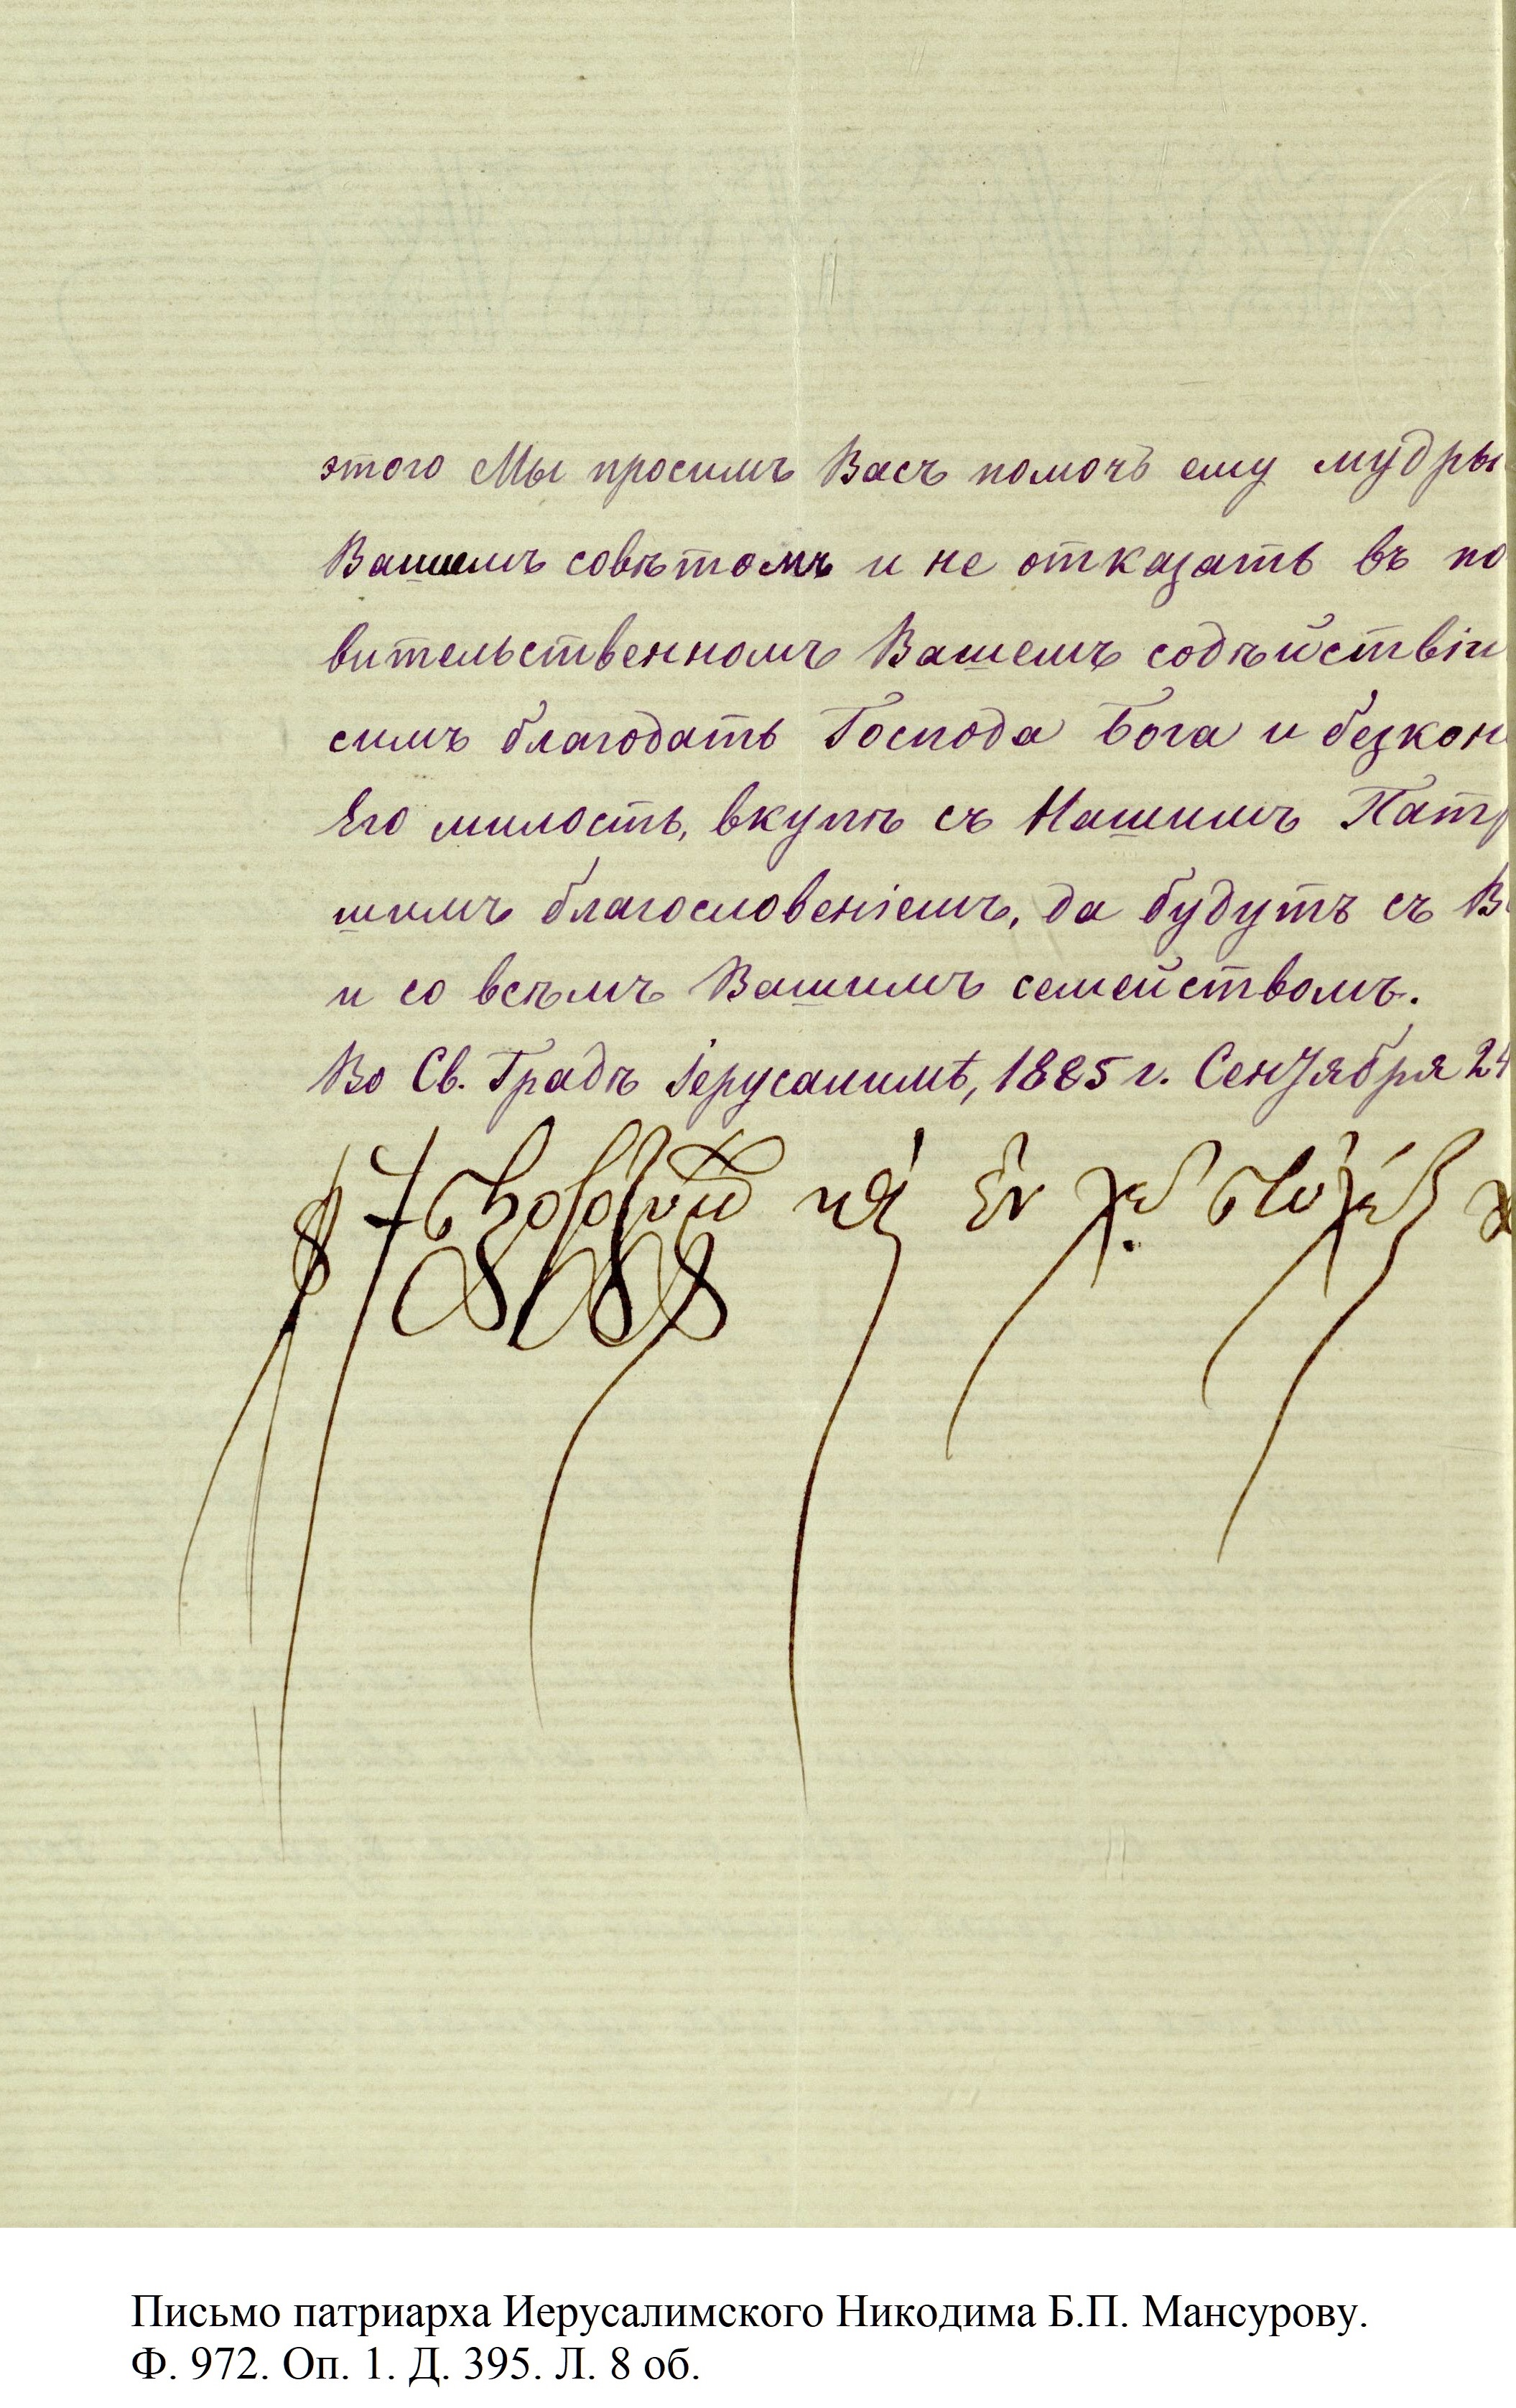 этого Мы просимъ Васъ помочь ему мудры
Вашимъ совѣтомъ и не отказать въ по
вительственномъ Вашемъ содѣйствіи
симъ благодать Господа Бога и безкон
Его милость, вкупѣ съ Нашимъ Патр
шимъ благословеніемъ, да будутъ съ В
и со всѣмъ Вашимъ семействомъ.
Во Св. Градѣ Іерусалимѣ, 1885 г. Сентября 24
ἐν
Письмо патриарха Иерусалимского Никодима Б.П. Мансурову.
Ф. 972. Оп. 1. Д. 395. Л. 8 об.